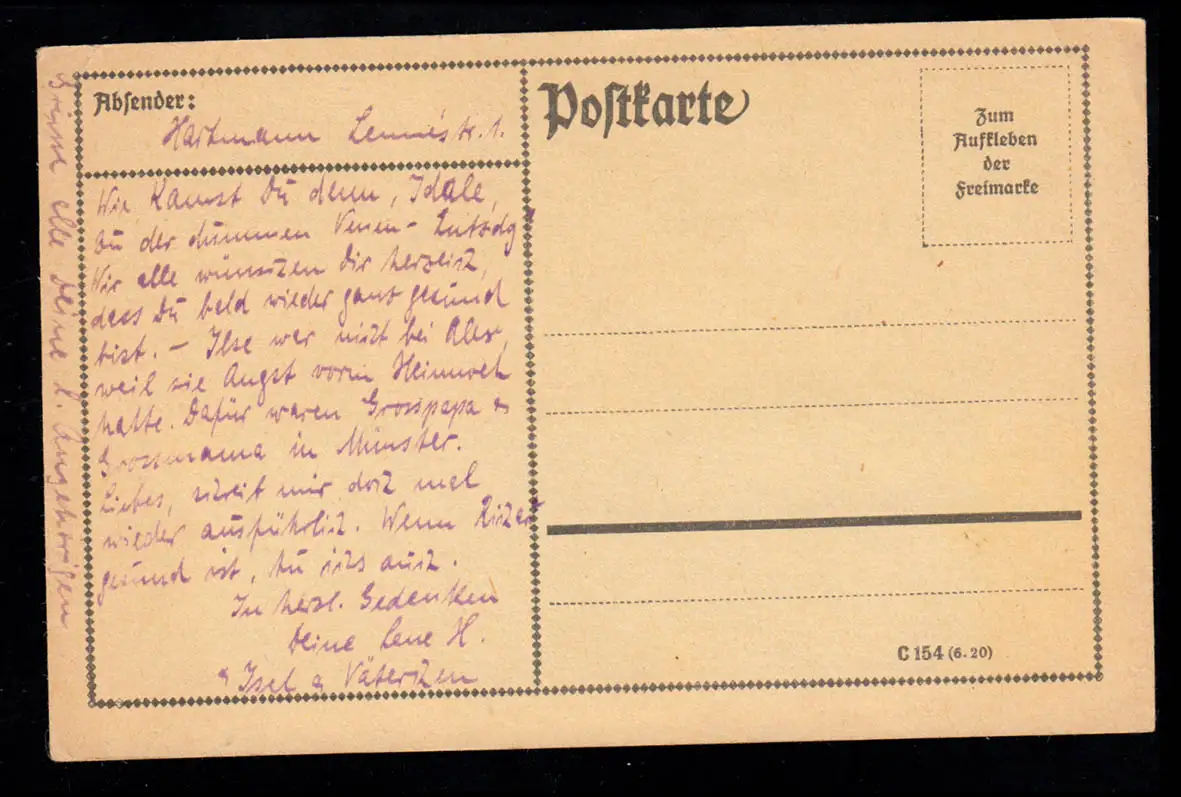 Absender:
Hartmann Lennéstr. 1.
Wie kamst Du denn, Idale,
zu der dummen Venen-Entzdg
Wir alle wünschen Dir herzlich,
dass Du bald wieder ganz gesund
bist. – Ilse war nicht bei
weil sie Angst vorm Heimweh
hatte. Dafür waren Grosspapa &
Grossmama in Münster.
Liebes, schreib mir doch mal
wieder ausführlich. Wenn
gesund ist, tu ichs auch.
In herzl. Gedenken
Deine Lene H.
& Isel & Väterchen
Grüsse alle Deine l. Angehörigen
Postkarte
Zum
Aufkleben
der
Freimarke
C 154 (6. 20)